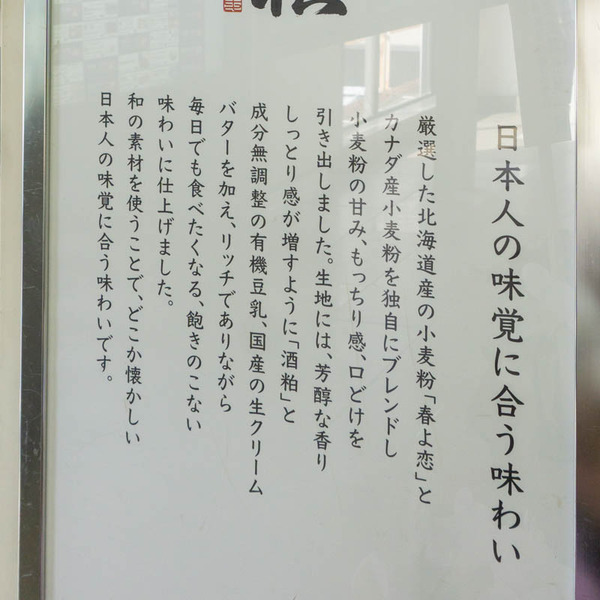 日本人の味覚に合う味わい
厳選した北海道産の小麦粉「春よ恋」と
カナダ産小麦粉を独自にブレンドし
小麦粉の甘み、もっちり感、口どけを
引き出しました。生地には、芳醇な香り
しっとり感が増すように「酒粕」と
成分無調整の有機豆乳、国産の生クリーム
バターを加え、リッチでありながら
毎日でも食べたくなる、飽きのこない
味わいに仕上げました。
和の素材を使うことで、どこか懐かしい
日本人の味覚に合う味わいです。